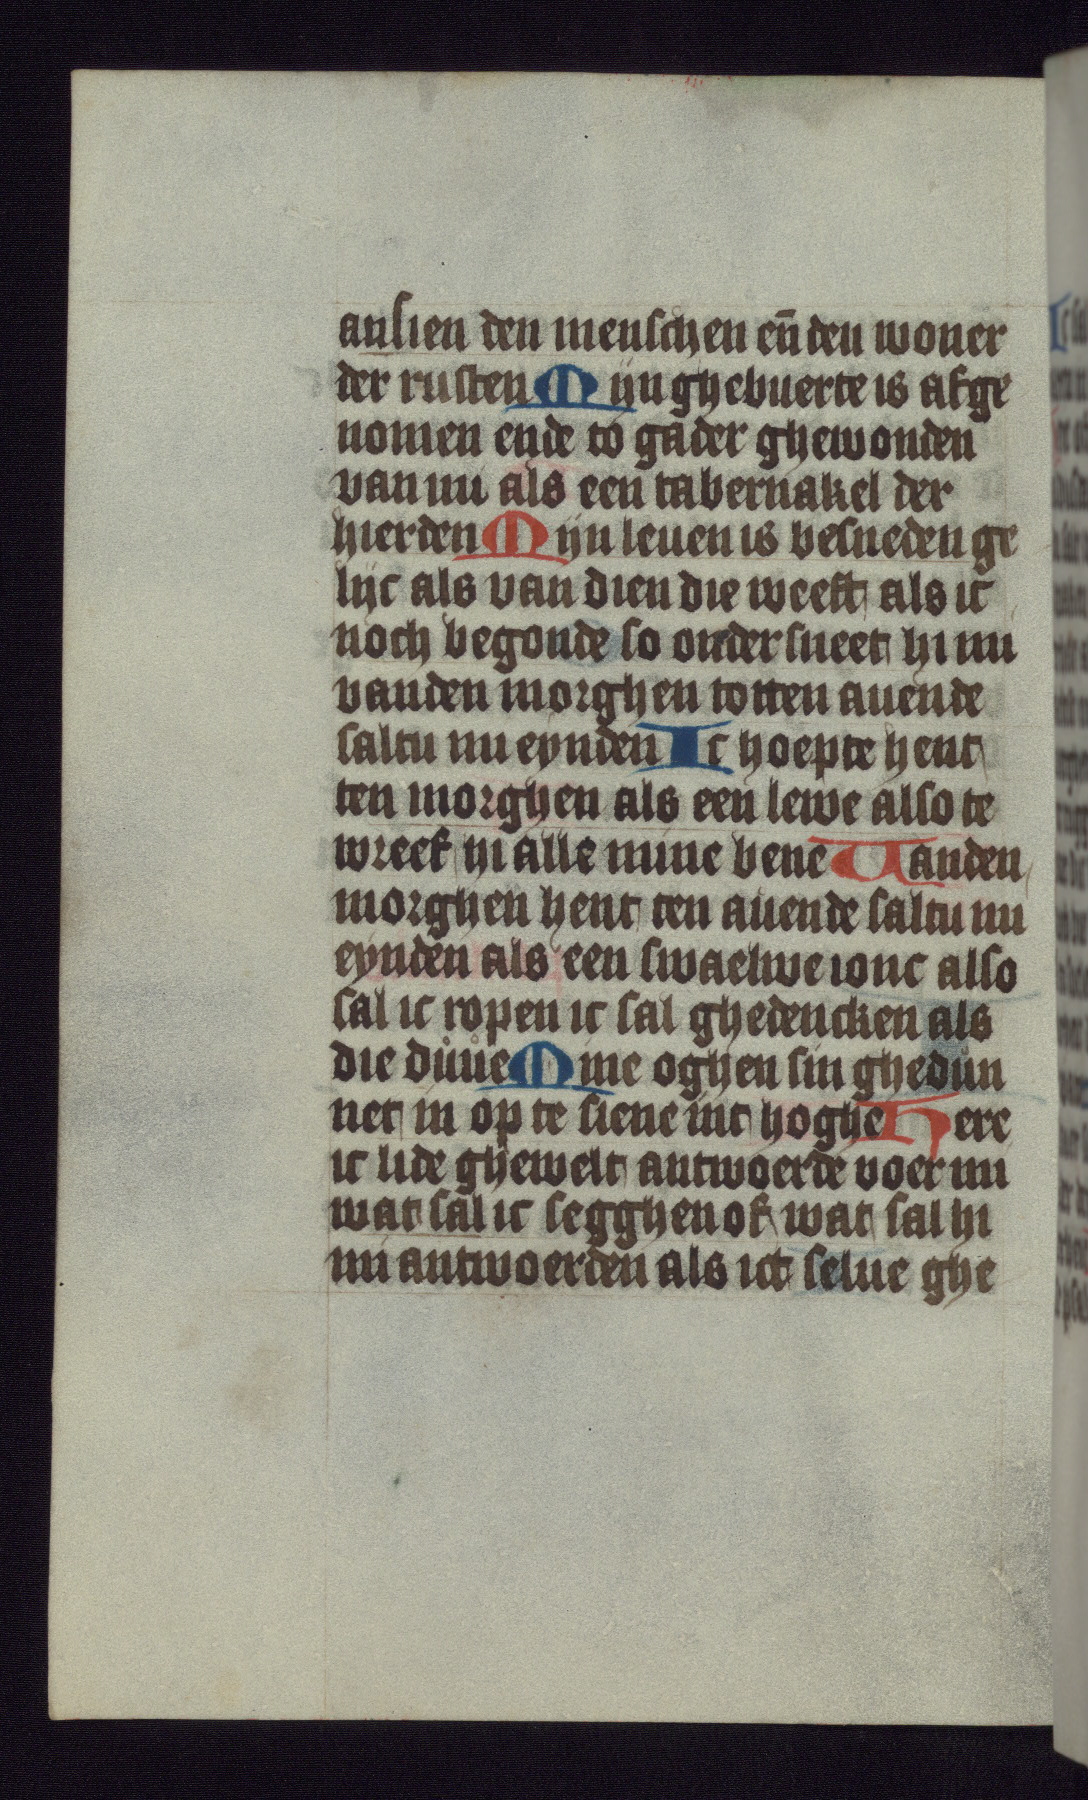 ansien den menschen en̄ den woner
der rusten Mijn ghebuerte is afge
nomen ende to gader ghewonden
van mi als een tabernakel der
hierden Mijn leuen is besneden ge
lijc als van dien die weeft als ic
noch begonde so onder sneet hi mi
vanden morghen totten auende
saltu mi eynden Ic hoepte hent
ten morghen als een lewe also te
wreef hi alle mine bene Uanden
morghen hent ten auende saltu mi
eynden als een swaelwe ionc also
sal ic ropen ic sal ghedencken als
die duue Mine oghen sin ghedun
net in op te siene int hoghe Here
ic lide ghewelt antwoerde voer mi
wat sal ic segghen of wat sal hi
mi antwoerden als ict selue ghe